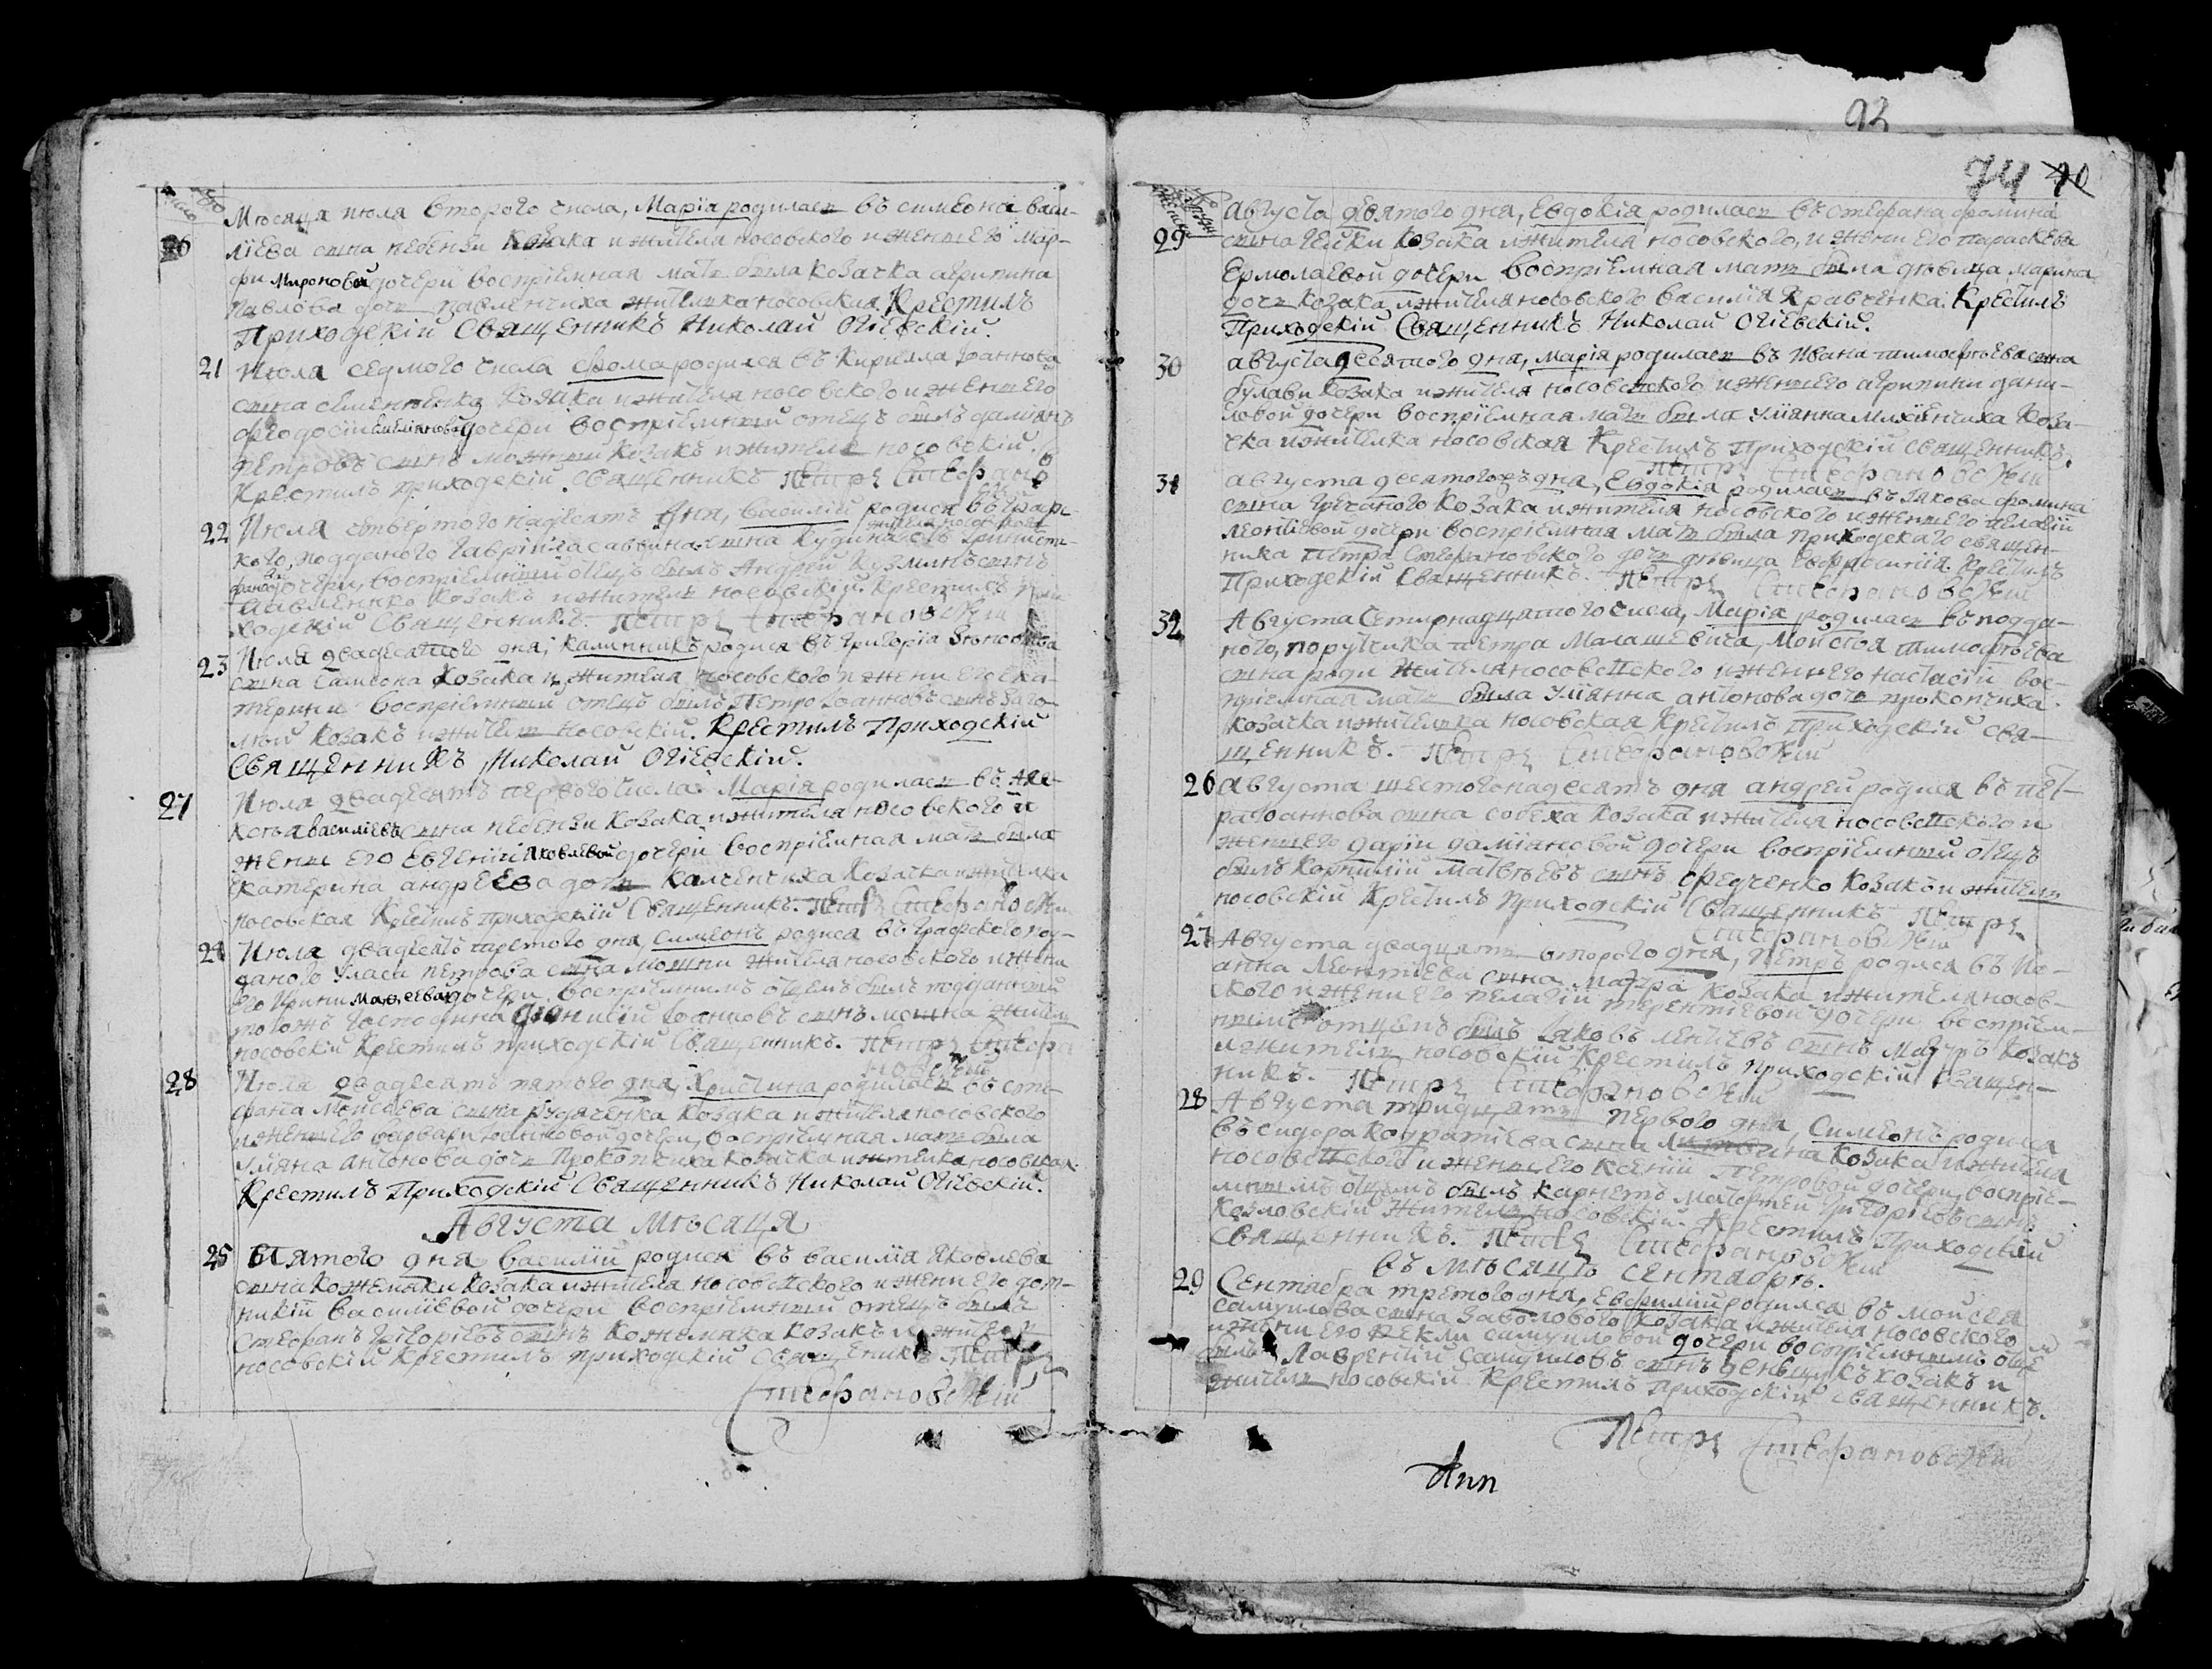 Мѣсяца июля второго числа, Маріа родилась въ симеона васи-
26 лїева сына пебензи козака и жителя носовского и жены его мар-
фи Мироновой дочери воспріемная мать была козачка агрипина
павлова дочь павленчиха жителька носовская. Крестилъ
Приходскій Священникъ Николай Огіевскій.
21 Июля седмого числа Фома родился въ Кирилла Іоаннова
сына семененка козака и жителя носовского и жены его
феодосіи Емеліяновой дочери воспріемный отецъ былъ даміянъ
петровъ сынъ козакъ и житель носовскій.
Крестилъ приходскій священникъ Петръ Стефано
22 Июля четвертого надесять дня, василій родися въ граф-
жителя носовского
кого,подданого гавріила саввина сына
дочери, воспріемный отецъ былъ Андрей Кузминъ сынъ
павленко козакъ и житель носовскій. Крестилъ при-
ходскій Священникъ. Петръ Стефановскій
23 Июля двадесятого дня, каллиникъ родися въ григоріа
сына самсона козака и жителя носовского и жени его ека-
терини воспріемный отецъ былъ Петро Іоанновъ сынъ
козакъ и житель носовскій. Крестилъ Приходскій
Священникъ Николай Огіевскій.
27 Июля двадесять первого числа Маріа родилась въ Але-
ксѣя василіева сына пебензи козака и жителя носовского и
жены его Евгеніи Яковлевой дочери воспріемная мать была
екатерина андреева дочь калченчиха козачка и жителка
носовская Крестилъ приходскій Священникъ. Петръ Стефановскій
24 Июля двадесять третого дня, симеонъ родися въ графского под-
даного Уласа петрова сына мошни жителя носовского и жени
его Ирини Маѳеевой дочери, воспріемнимъ отцемъ былъ подданный
тогожъ господина Діонисій Іоанновъ сынъ мошна житель
носовскій Крестилъ приходскій Священникъ. Петръ Стефа
новскій
28 Июля двадесять пятого дня, Христина родилась въ сте-
фана Моисеева сына рудяченка козака и жителя носовского
и жены его варвари дочери, воспріемная мать была
уліяна антонова дочь Прокопчиха козачка и жителка носовская.
Крестилъ Приходскій Священникъ Николай Огіевскій.
Августа Мѣсяця
25 Пятого дня василій родися въ василіа яковлева
сына кожемяки козака и жителя носовского и жени его дом-
никіи василіевой дочери воспріемный отецъ былъ
стефанъ григоріевъ сынъ кожемяка козакъ и житель
носовскій Крестилъ приходскій священикъ Петръ
Стефановскій
93
74 70
августа девятого дня, Евдокіа родилась въ стефана фомина
29 сына гейки козака и жителя носовского, и жени его параскеви
Ермолаевой дочери воспріемная мать была дѣвица марина
дочь козака, и жителя носовского василіа Кравченка. Крестилъ
Приходскій Священникъ Николай Огіевскій.
30 августа десятого дня, маріа родилась въ Ивана тимофѣева сына
булави козака и жителя носовского и жены его агрипини дани-
ловой дочери воспріемная мать была уліянна михіенчиха коза-
чка и жителка носовская Крестилъ Приходскій священникъ.
Петръ Стефановскій
31 августа десятогожъ дня, Евдокіа родилась въ іакова фомина
сына гречаного козака и жителя носовского и жены его пелагіи
леонтіевой дочери воспріемная мать была приходского священ-
ника петра Стефановского дочь дѣвица Евфросиніа. Крестилъ
Приходскій Священникъ. Петръ Стефановскій
32 Августа четирнадцятого числа, Маріа родилась въ подда-
ного, поручика петра Малашевича, Моисея тимофѣева
сына жителя носовского и жены его настасіи вос-
пріемная мать была уліянна антонова дочь прокопчиха
козачка и жителька носовская Крестилъ Приходскій свя-
щенникъ. Петръ Стефановскій
26 августа шестогонадесять дня андрей родися въ пет-
ра Іоаннова сына собеха козака и жителя носовского и
жены его даріи даміяновой дочери воспріемный отецъ
былъ корнилій матвѣевъ сынъ федченко козакъ и житель
носовскій Крестилъ Приходскій Священникъ Петръ
Стефановскій
27 Августа двадцять второго дня, Петръ родися въ Іо-
анна Леонтіева сына мазура козака и жителя носов-
ского и жени его пелагіи терентіевой дочери воспріем-
нимъ отцемъ былъ Іаковъ сынъ мазуръ козакъ
и житель носовскій Крестилъ приходскій священ-
никъ. Петръ Стефановскій
28 Августа тридцять первого дня, Симеонъ родися
въ сидора кодратіева сына литвина козака и жителя
носовского и жены его ксеніи Петровой дочери, воспріе-
мнымъ отцемъ былъ матвей григоріевъ сынъ
козловскій житель носовскій. Крестилъ Приходскій
Священникъ. Петръ Стефановскій
въ мѣсяцѣ сентябрѣ.
29 Сентября третого дня, Евфимій родился въ моисея
самуилова сына заволового козака и жителя носовского
и жени его Фекли самуиловой дочери воспріемнымъ отце
былъ Лаврентій самуиловъ сынъ козакъ и
житель носовскій Крестилъ Приходскій священникъ.
Петръ Стефановскій